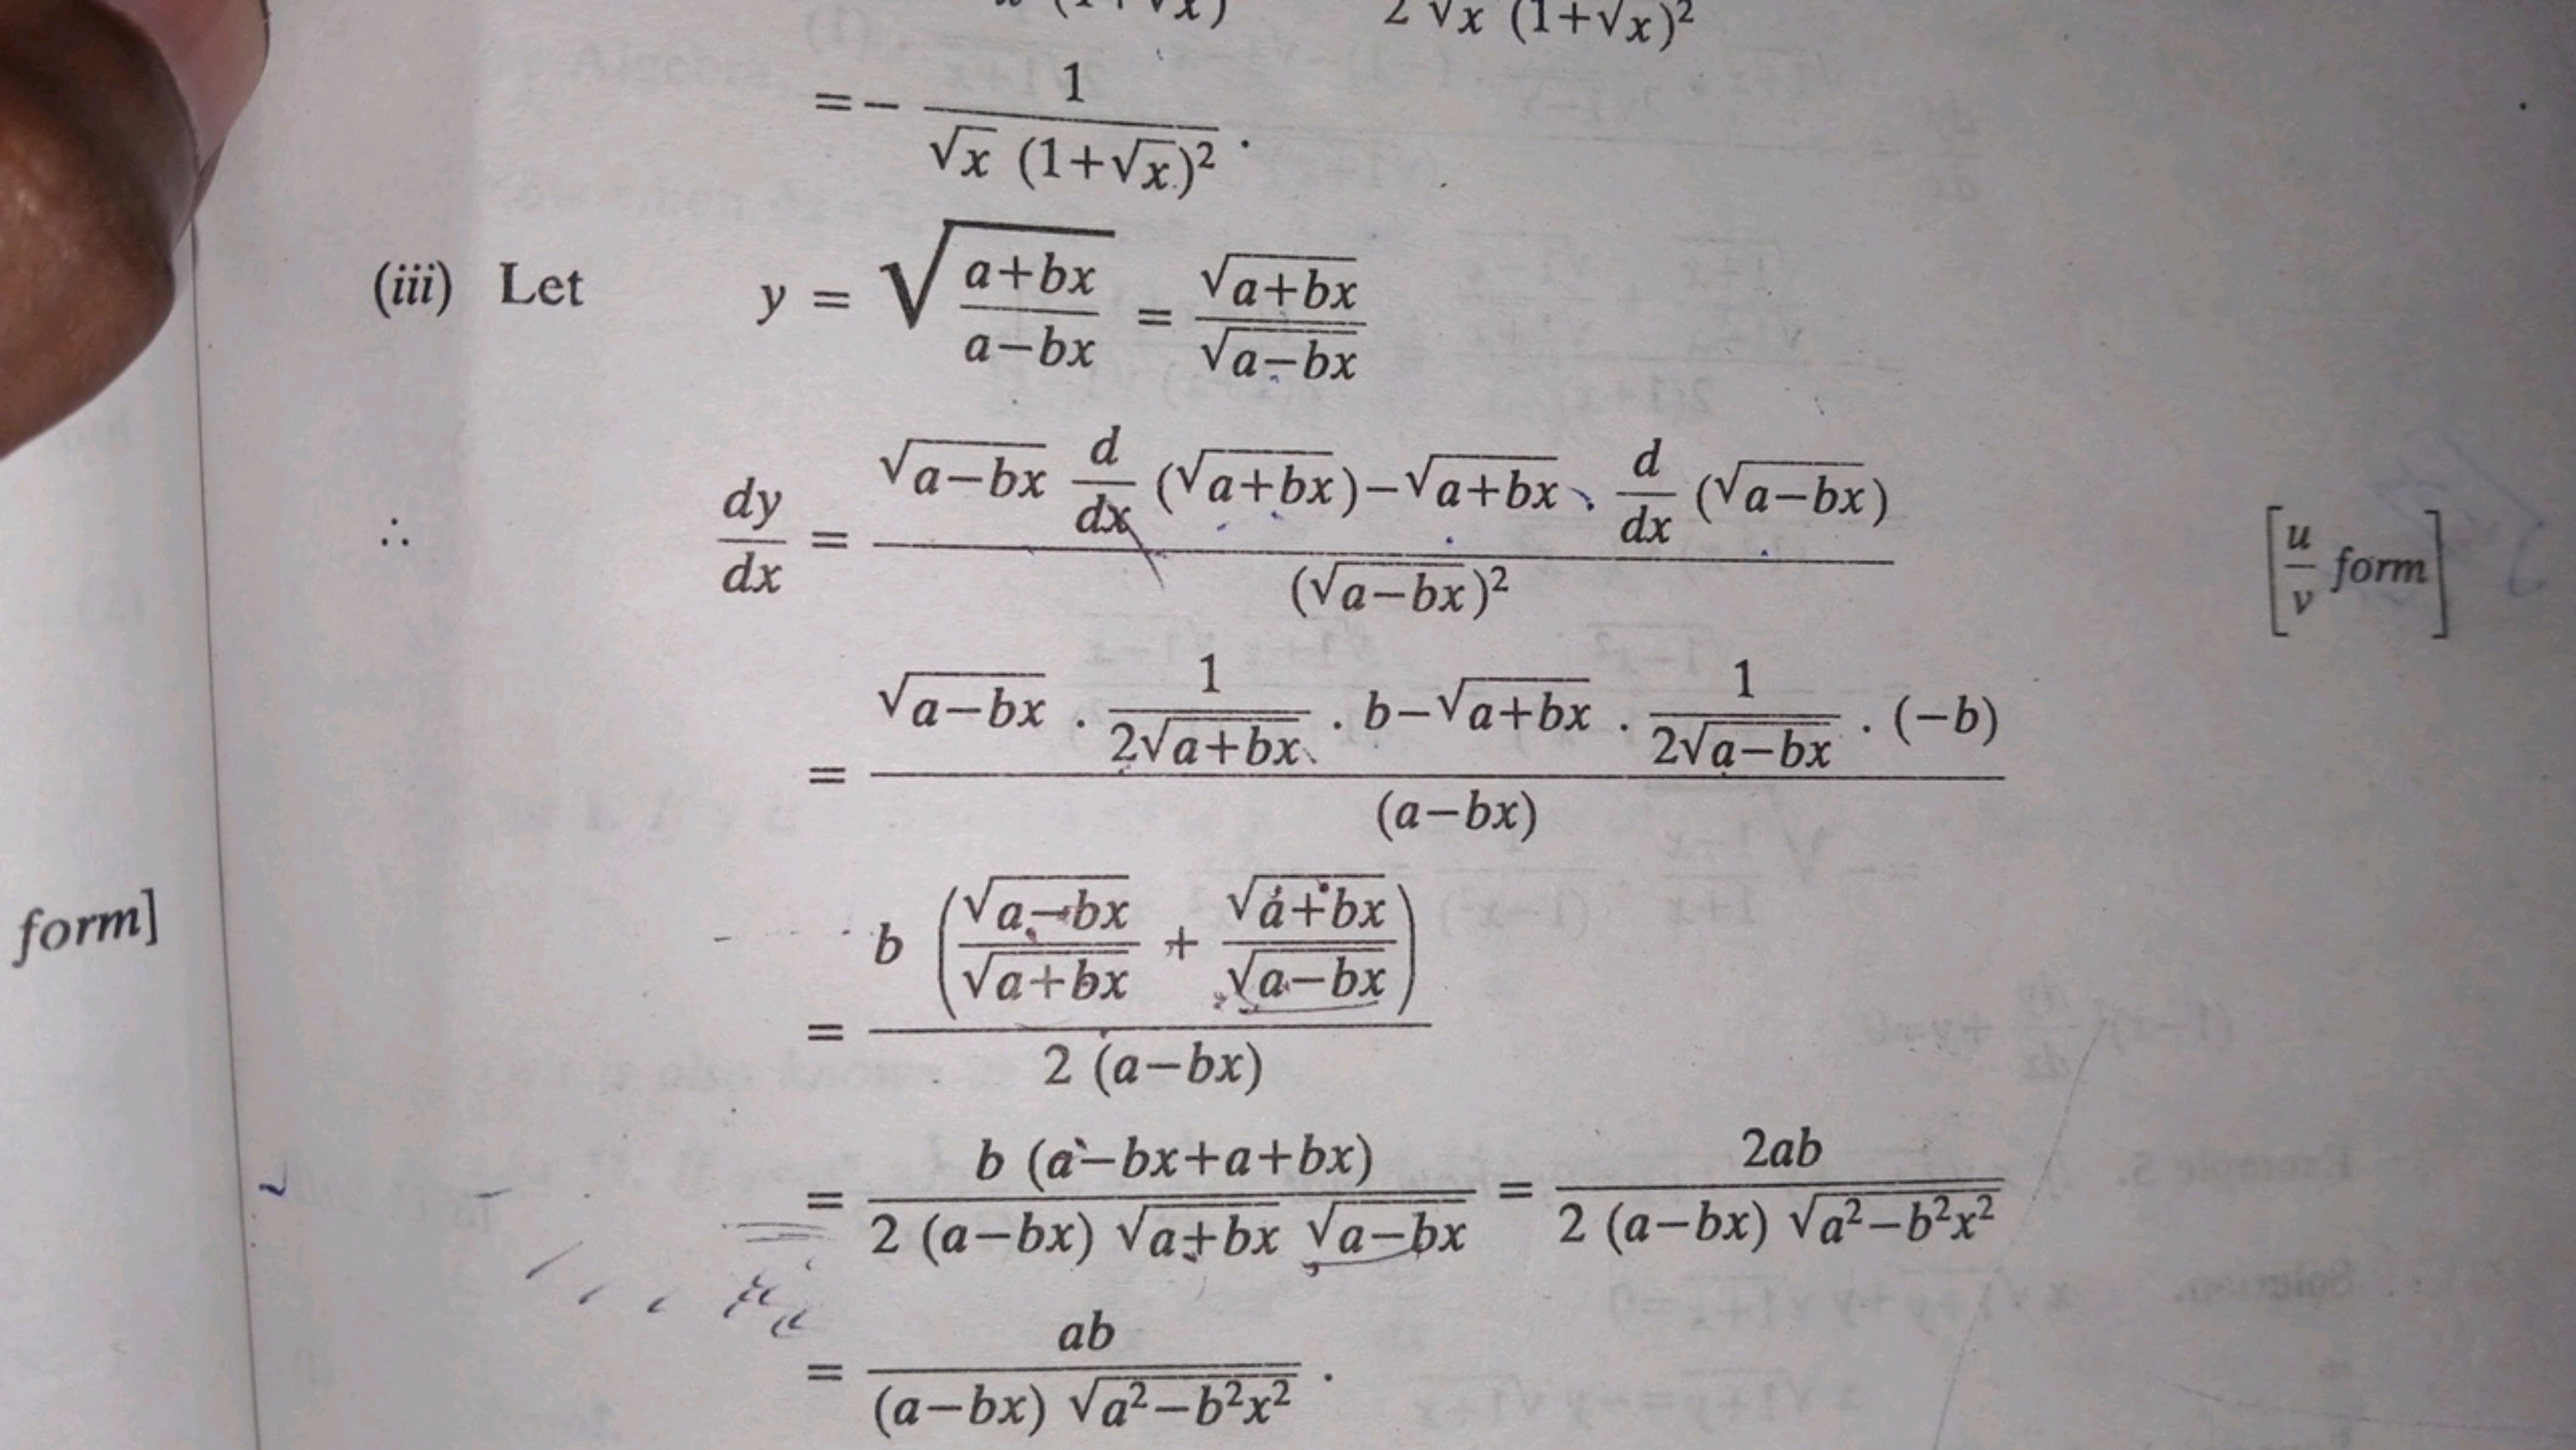 2 √x (1+√x)²
= − 1 / √x (1+√x)² .
(iii) Let y = √((a+bx)/(a−bx)) = √(a+bx) / √(a−bx)
∴ dy/dx = [√(a−bx) d/dx (√(a+bx)) − √(a+bx) . d/dx (√(a−bx))] / (√(a−bx))² [u/v form]
= [√(a−bx) . 1/(2√(a+bx)) . b − √(a+bx) . 1/(2√(a−bx)) . (−b)] / (a−bx)
form]
= b (√(a−bx)/√(a+bx) + √(a+bx)/√(a−bx)) / 2 (a−bx)
= b (a−bx+a+bx) / 2 (a−bx) √(a+bx) √(a−bx) = 2ab / 2 (a−bx) √(a²−b²x²)
= ab / (a−bx) √(a²−b²x²) .